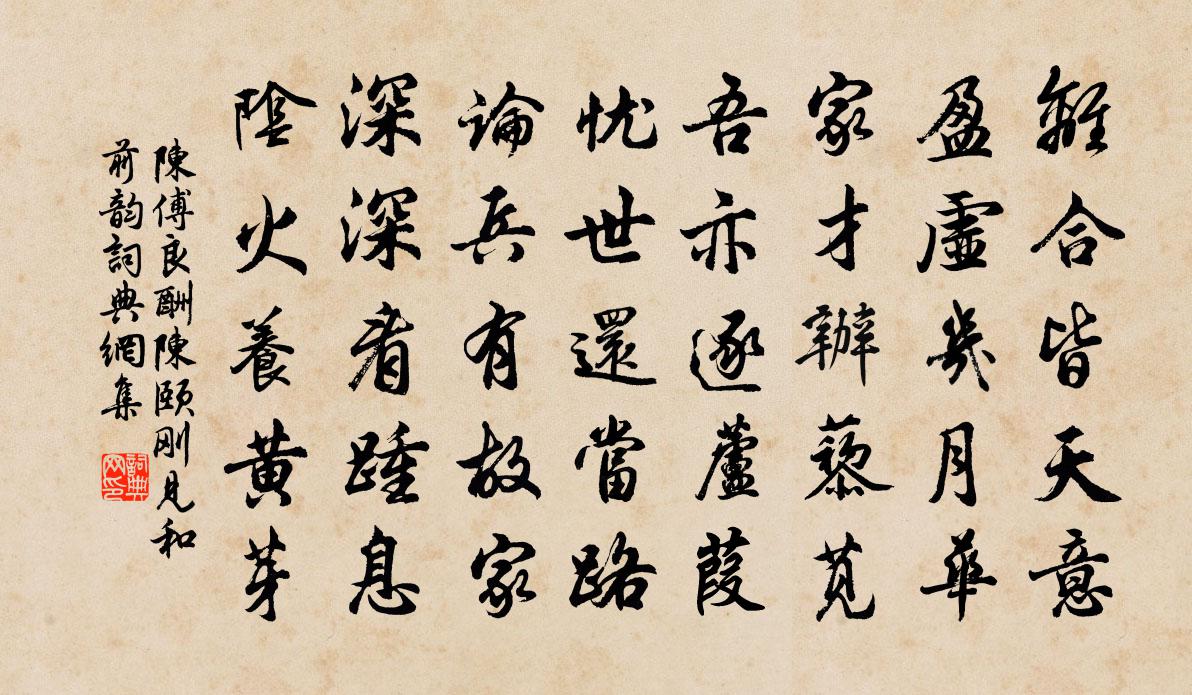 離合皆天意
盈虛幾月華
家才辦藜莧
吾亦逐蘆葭
忧世還當路
論兵有故家
深深看踵息
陰火養黃芽
陳傅良酬陳頤剛見和
前韵詞典網集
詞典網印